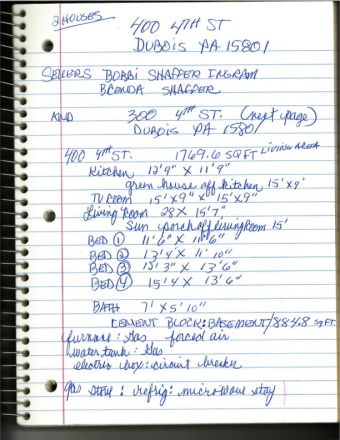 2 HOUSES
400 4TH ST
DUBOIS PA 15801
SELLERS BOBBI SHAFFER INGRAM
BRENDA SHAFFER
AND 300 4TH ST. (next page)
DUBOIS PA 15801
400 4TH ST. 1769.6 SQ FT LIVING AREA
Kitchen 12'9" X 11'9"
green house off kitchen 15'X9'
TV ROOM 15'X9" X 15'X9"
Living Room 28 X 15'7"
Sun porch off living Room 15'
BED 1 11'6" X 11'6"
BED 2 13'4" X 11'10"
BED 3 13'3" X 13'6"
BED 4 15'4 X 13'6"
BATH 7' X 5'10"
CEMENT BLOCK: BASEMENT/884.8 SQ FT
furnace: Gas forced air
water tank: Gas
electric box: circuit breaker
gas stove: refrig: microwave stay